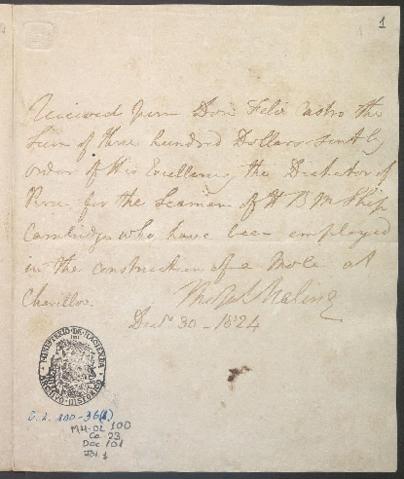 1
Received from Don Felix Castro the
Sum of three hundred Dollars sent by
order of His Excellency the Dictator of
Peru for the Seamen of H B M Ship
Cambridge who have been employed
in the construction of a Mole at
Chorillos.
Thos Jas Maling
Decr 30 - 1824
MINISTERIO DE HACIENDA
ARCHIVO HISTORICO
O.L. 100-36(1)
MH-OL 100
Ca 23
Doc 101